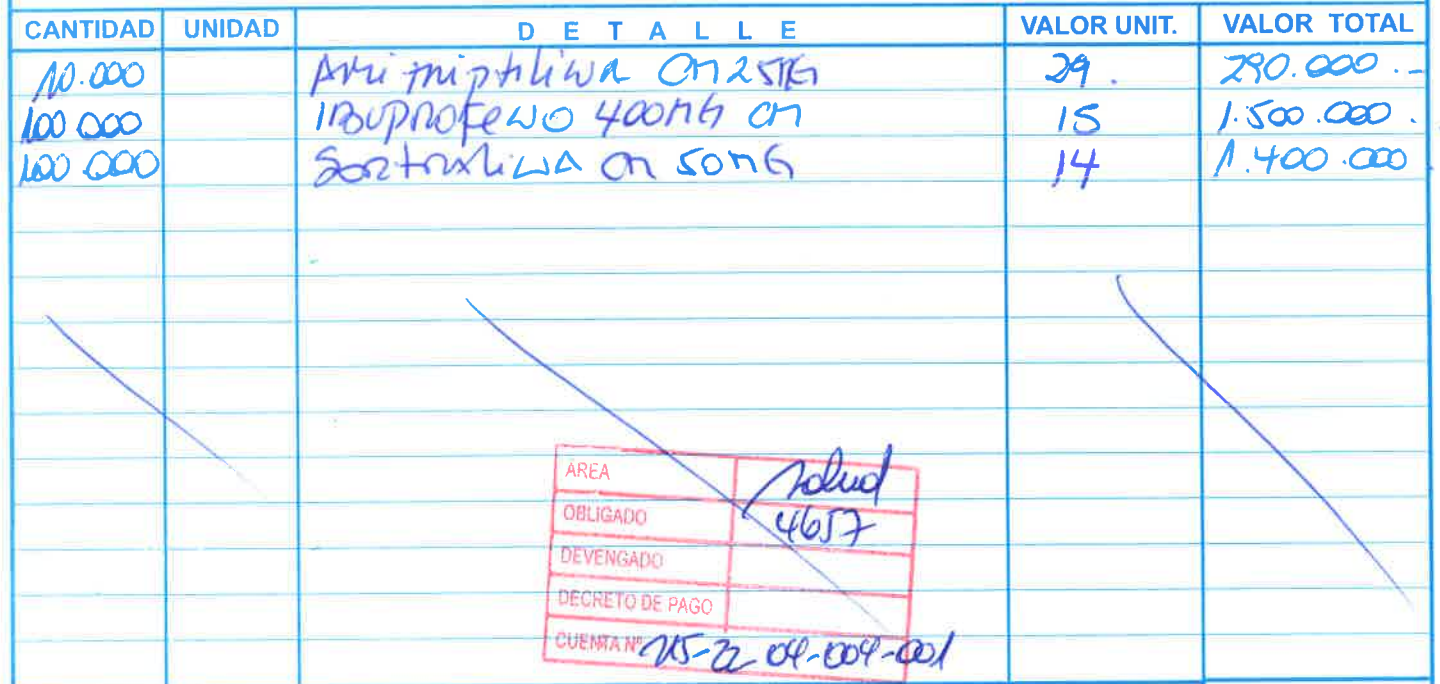 CANTIDAD UNIDAD DETALLE VALOR UNIT. VALOR TOTAL
10.000 Amitriptilina CM 25MG 29. 290.000.-
100.000 IBUPROFENO 400MG CM 15 1.500.000.
100.000 Sertralina CM 50MG 14 1.400.000
AREA Salud
OBLIGADO 4657
DEVENGADO
DECRETO DE PAGO
CUENTA Nº 215-22-04-004-001